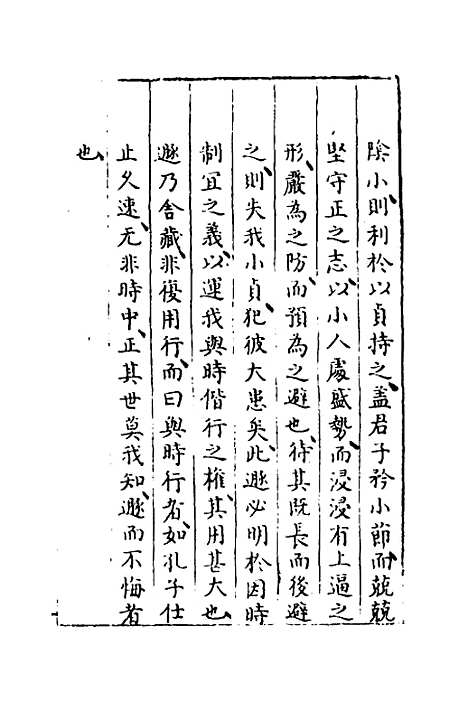 陰小則利於以貞持之蓋君子矜小節而兢兢
堅守正之志以小人處盛勢而浸浸有上逼之
形嚴為之防而預為之避也待其既長而後避
之則失我小貞犯彼大患矣此遯必明於因時
制宜之義以運我與時偕行之權其用甚大也
遯乃舍藏非復用行而曰與時行者如孔子仕
止久速无非時中正其世莫我知遯而不悔者
也